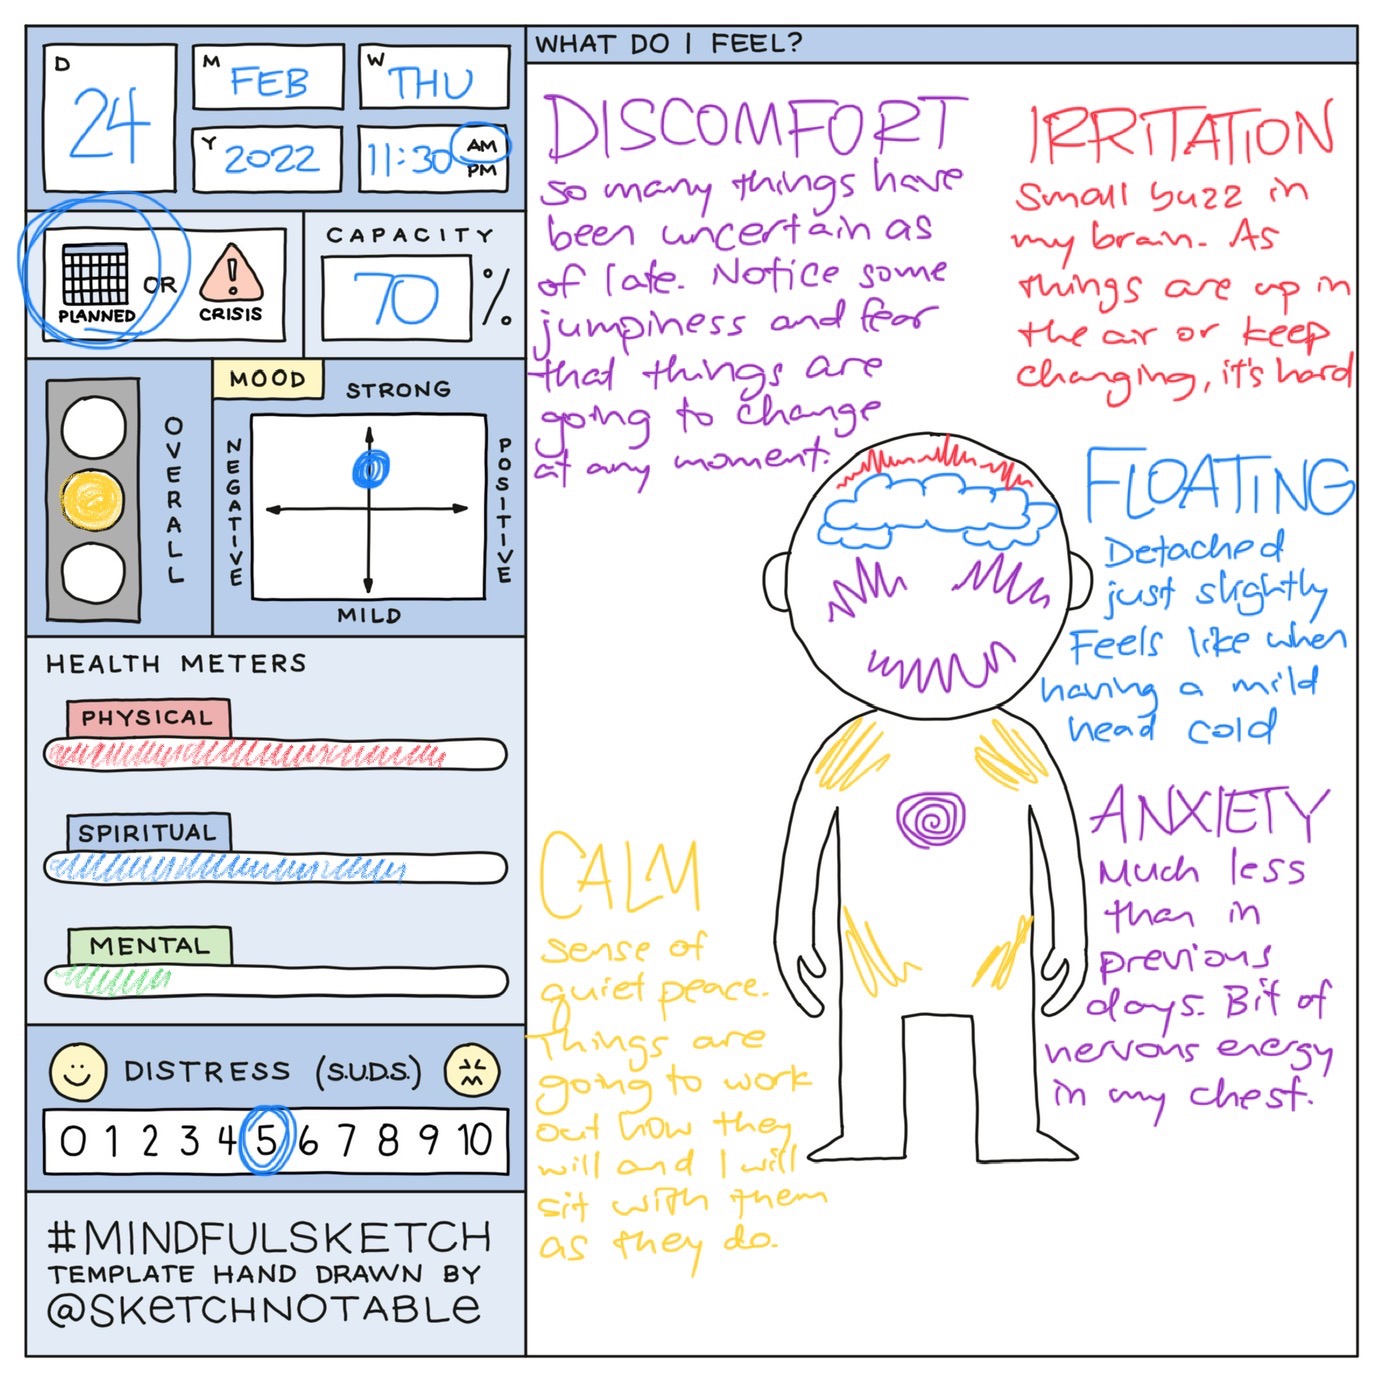 D
24
M
FEB
W
THU
Y
2022
11:30
AM
PM
PLANNED
OR
CRISIS
CAPACITY
70 %
OVERALL
MOOD
STRONG
NEGATIVE
POSITIVE
MILD
HEALTH METERS
PHYSICAL
SPIRITUAL
MENTAL
DISTRESS (S.U.D.S.)
0 1 2 3 4 5 6 7 8 9 10
#MINDFULSKETCH
TEMPLATE HAND DRAWN BY
@SKETCHNOTABLE
WHAT DO I FEEL?
DISCOMFORT
So many things have
been uncertain as
of late. Notice some
jumpiness and fear
that things are
going to change
at any moment.
IRRITATION
Small buzz in
my brain. As
things are up in
the air or keep
changing, it's hard
FLOATING
Detached
just slightly
Feels like when
having a mild
head cold
ANXIETY
Much less
than in
previous
days. Bit of
nervous energy
in my chest.
CALM
sense of
quiet peace.
Things are
going to work
out how they
will and I will
sit with them
as they do.